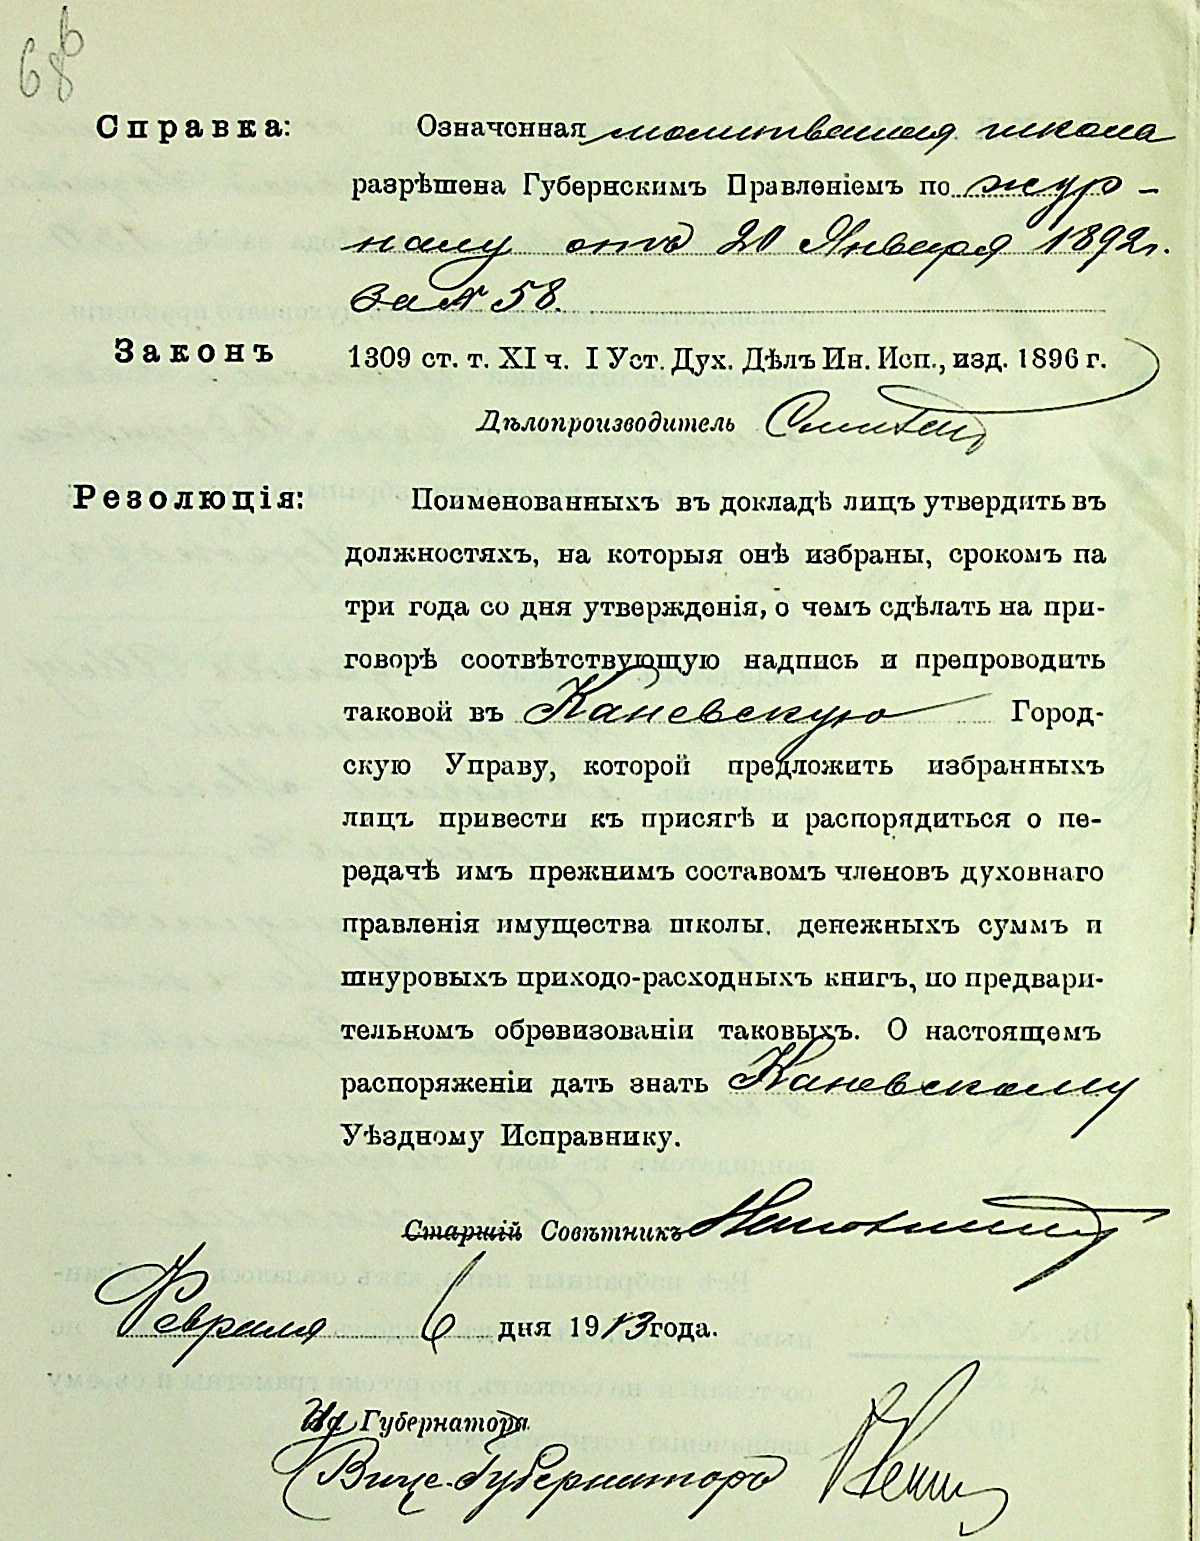 68б
Справка: Означенная молитвенная школа
разрѣшена Губернскимъ Правленіемъ по жур-
налу отъ 20 Января 1892 г.
за № 58.
Законъ 1309 ст. т. XI ч. I Уст. Дух. Дѣлъ Ин. Исп., изд. 1896 г.
Дѣлопроизводитель
Резолюція: Поименованныхъ въ докладѣ лицъ утвердить въ
должностяхъ, на которыя онѣ избраны, срокомъ на
три года со дня утвержденія, о чемъ сдѣлать на при-
говорѣ соотвѣтствующую надпись и препроводить
таковой въ Каневскую Город-
скую Управу, которой предложить избранныхъ
лицъ привести къ присягѣ и распорядиться о пе-
редачѣ имъ прежнимъ составомъ членовъ духовнаго
правленія имущества школы, денежныхъ суммъ и
шнуровыхъ приходо-расходныхъ книгъ, по предвари-
тельномъ обревизованіи таковыхъ. О настоящемъ
распоряженіи дать знать Каневскому
Уѣздному Исправнику.
Старшій Совѣтникъ
Февраля 6 дня 1913 года.
Губернатора
Вице-Губернаторъ